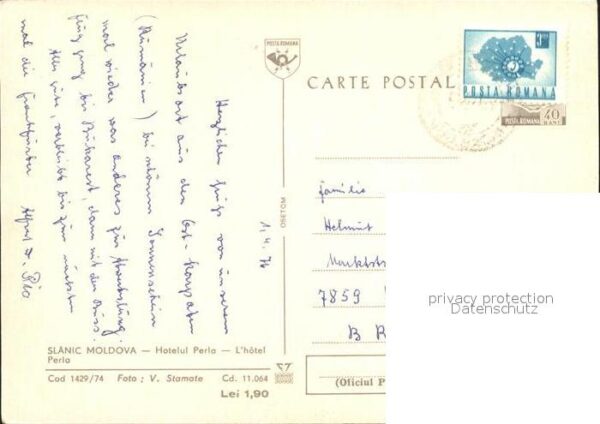 1.4.76
Herzlichen Gruß von unserem
Urlaubsort aus den Ost-Karpaten
(Rumänien) bei schönem Sonnenschein
mal wieder was anderes zur Abwechslung.
Flug ging bis Bukarest, dann mit dem Buss.
Alles gute, verbleibt bis zum nächsten
mal die Frankfurter Alfred u.
SLĂNIC MOLDOVA — Hotelul Perla — L'hôtel
Perla
Cod 1429/74 Foto: V. Stamate Cd. 11.064
Lei 1,90
POSTA ROMANA
OSETOM
CARTE POSTAL
POSTA ROMANA
POSTA ROMANA
40
BANI
Familie
Helmut
Marktst
7859
B R
(Oficiul P
privacy protection
Datenschutz